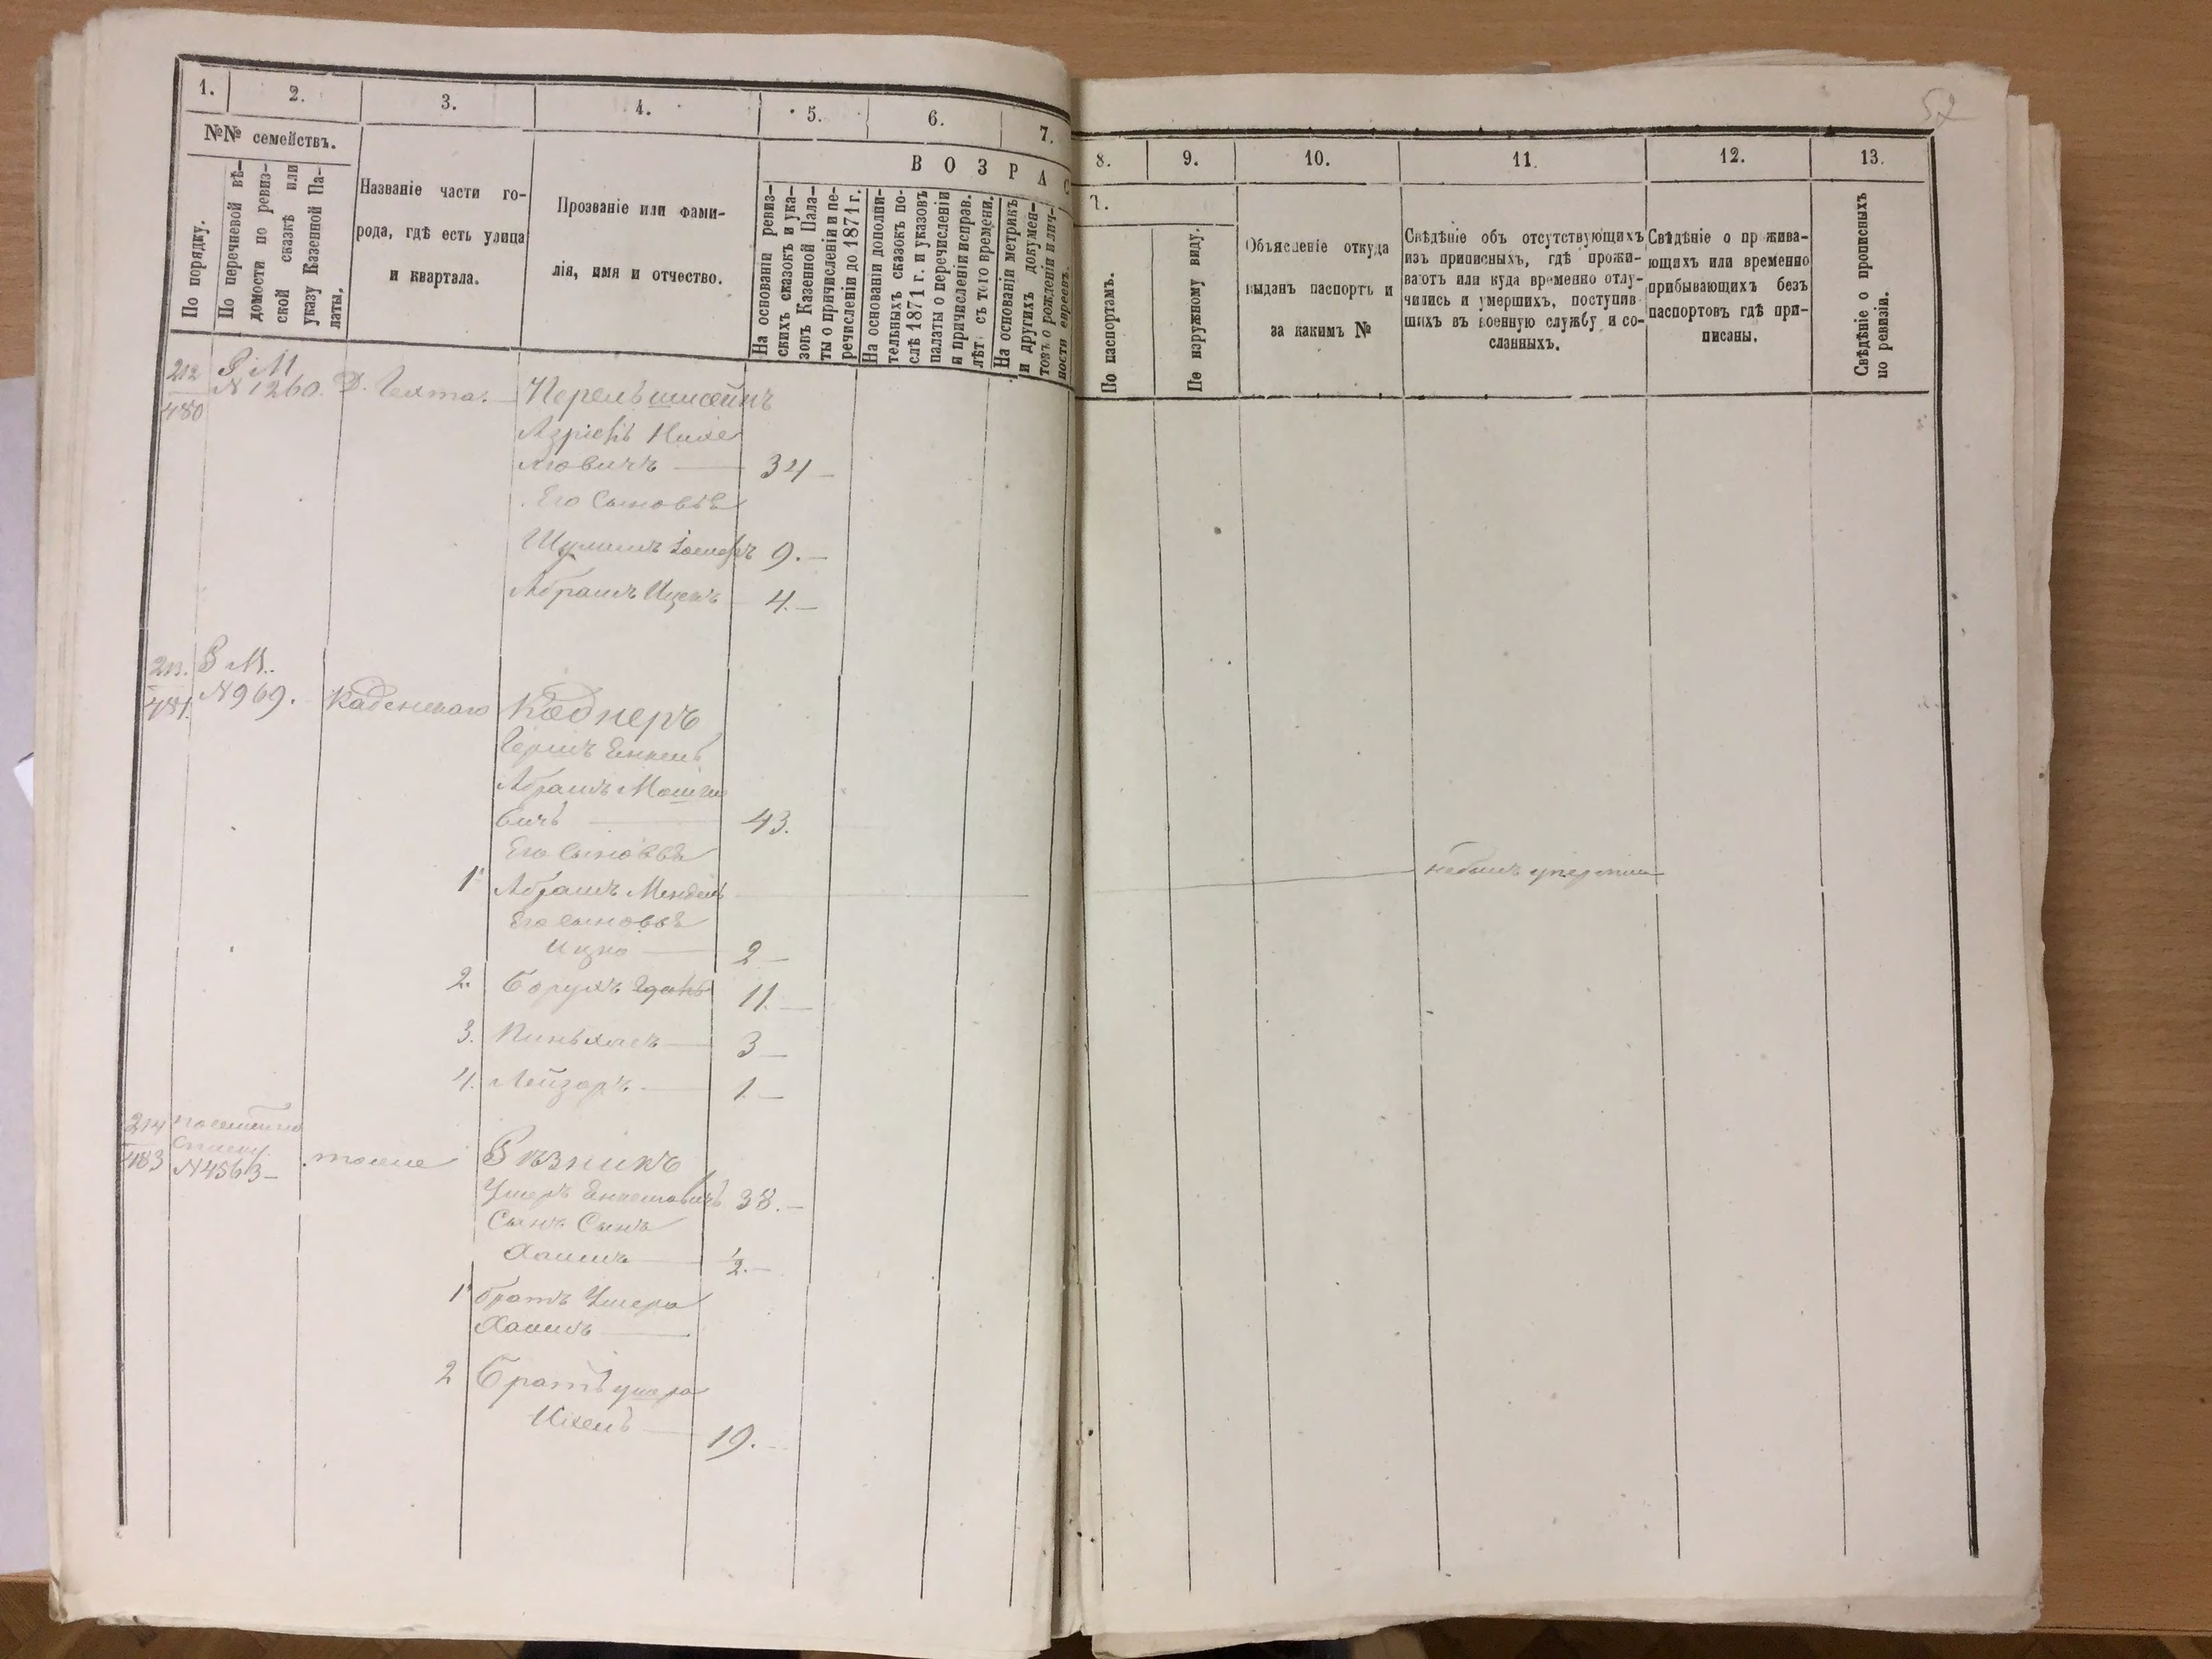 1. 2. 3. 4. 5. 6. 7.
№№ семействъ.
По порядку.
По перечневой вѣ-
домости по ревиз-
ской сказкѣ или
указу Казенной Па-
латы.
Названіе части го-
рода, гдѣ есть улица
и квартала.
Прозваніе или фами-
лія, имя и отчество.
ВОЗРАС
На основаніи ревиз-
скихъ сказокъ и ука-
зовъ Казенной Пала-
ты о причисленіи и пе-
речисленіи до 1871 г.
На основаніи дополни-
тельныхъ сказокъ по-
слѣ 1871 г. и указовъ
палаты о перечисленіи
и причисленіи исправ.
лѣт. съ того времени.
На основаніи метрикъ
и другихъ докумен-
товъ о рожденіи и лич-
ности евреевъ.
212
480
Р М
№ 1260.
Перельштейнъ
34
Его Сыновья
9.
Абрамъ Ицекъ 4.
213.
481.
Р М.
№ 969.
Каднеръ
Абрамъ Мошко
вичъ 43.
Его Сыновья
1 Абрамъ Мендель
Его сыновья
Ицко 2
2. Борухъ 11.
3. Пиньхасъ 3
4. Лейзоръ 1.
214
483
№ 4563
тоже
Рѣзникъ
38.
Сынъ Сынъ
Хаимъ 1/2.
1 братъ Ушера
Хаимъ
2 Братъ Ушера
Ихель 19.
52
8. 9. 10. 11. 12. 13.
По паспортамъ.
По наружному виду.
Объясненіе откуда
выданъ паспортъ и
за какимъ №
Свѣдѣніе объ отсутствующихъ
изъ приписныхъ, гдѣ прожи-
ваютъ или куда временно отлу-
чились и умершихъ, поступив
шихъ въ военную службу и со-
сланныхъ.
Свѣдѣніе о прожива-
ющихъ или временно
прибывающихъ безъ
паспортовъ гдѣ при-
писаны.
Свѣдѣніе о прописныхъ
по ревизіи.